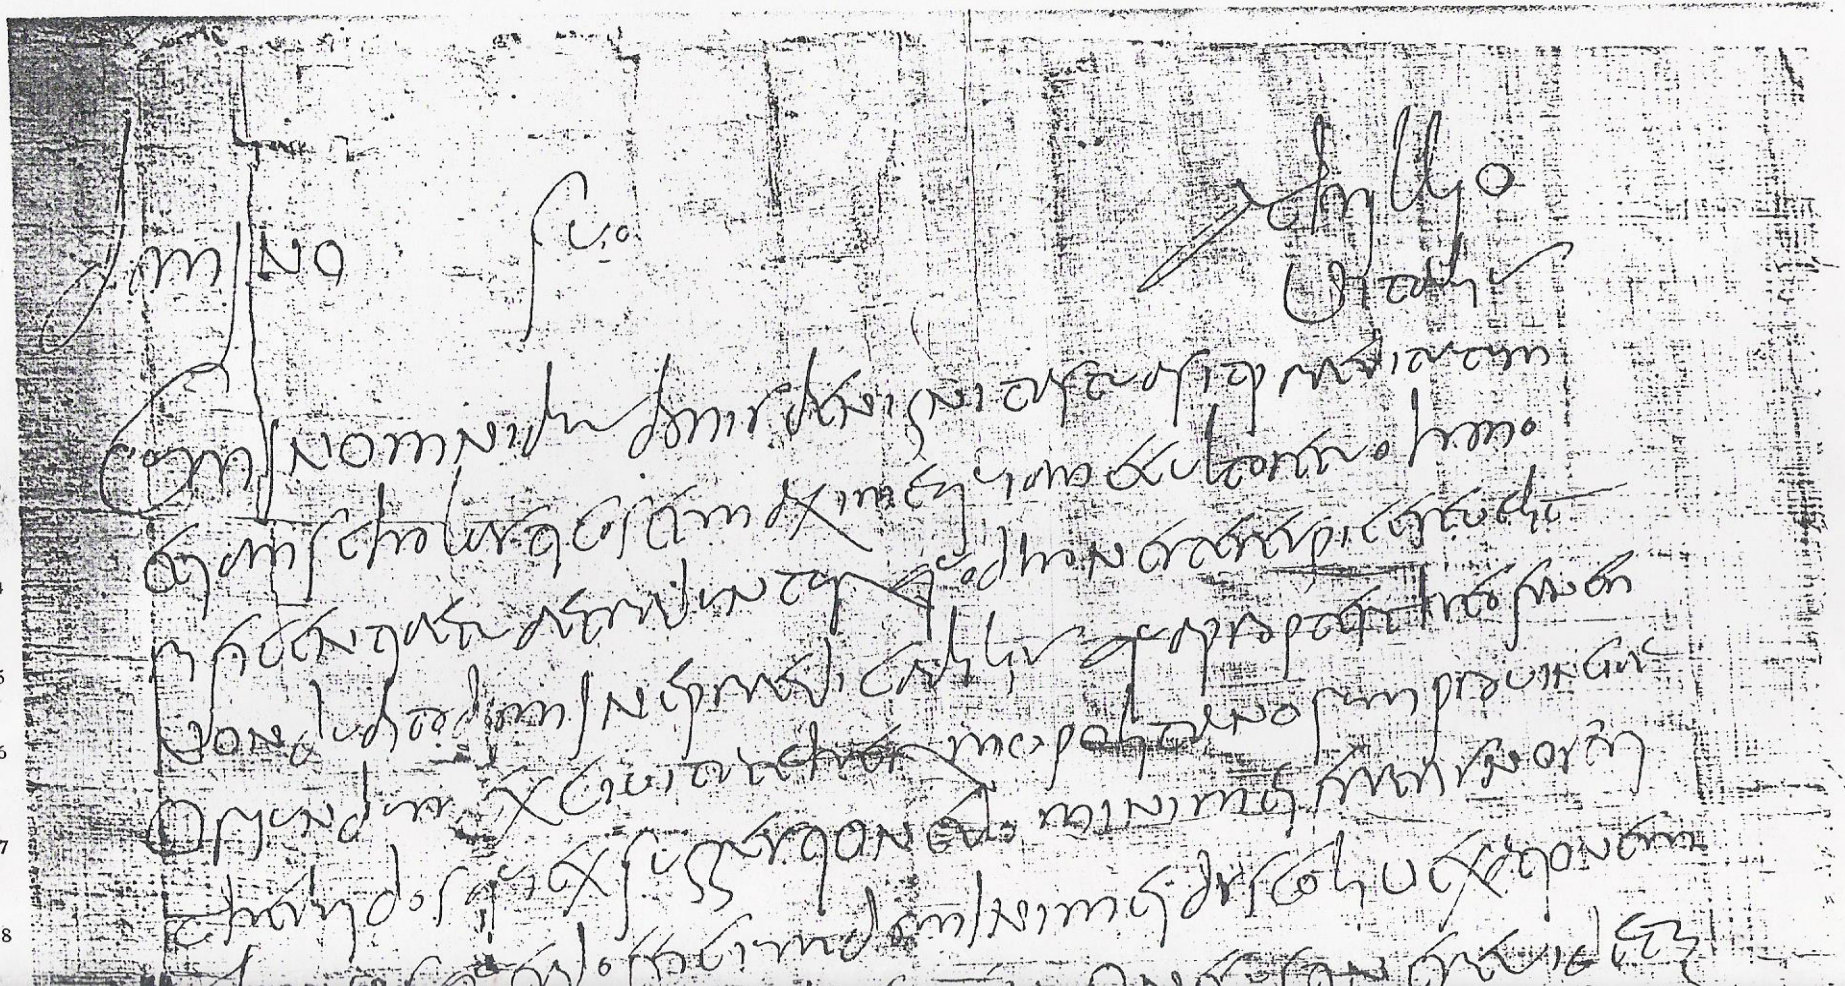 Domino suo Achillio
Vitalis
Cum in omnibus bonis benignitas tua sit praedita tum
etiam scholasticos et maxime qui a me cultore tuo hono
5 rificentiae tuae traduntur quod honeste respicere velit
6 non dubito domine praedicabilis quapropter Theofanen
7 oriundum ex civitate Hermupolitanorum provinciae
8 Thebaidos qui ex suggestione domini mei fratris nostri
ad officium domini mei Dyscoli